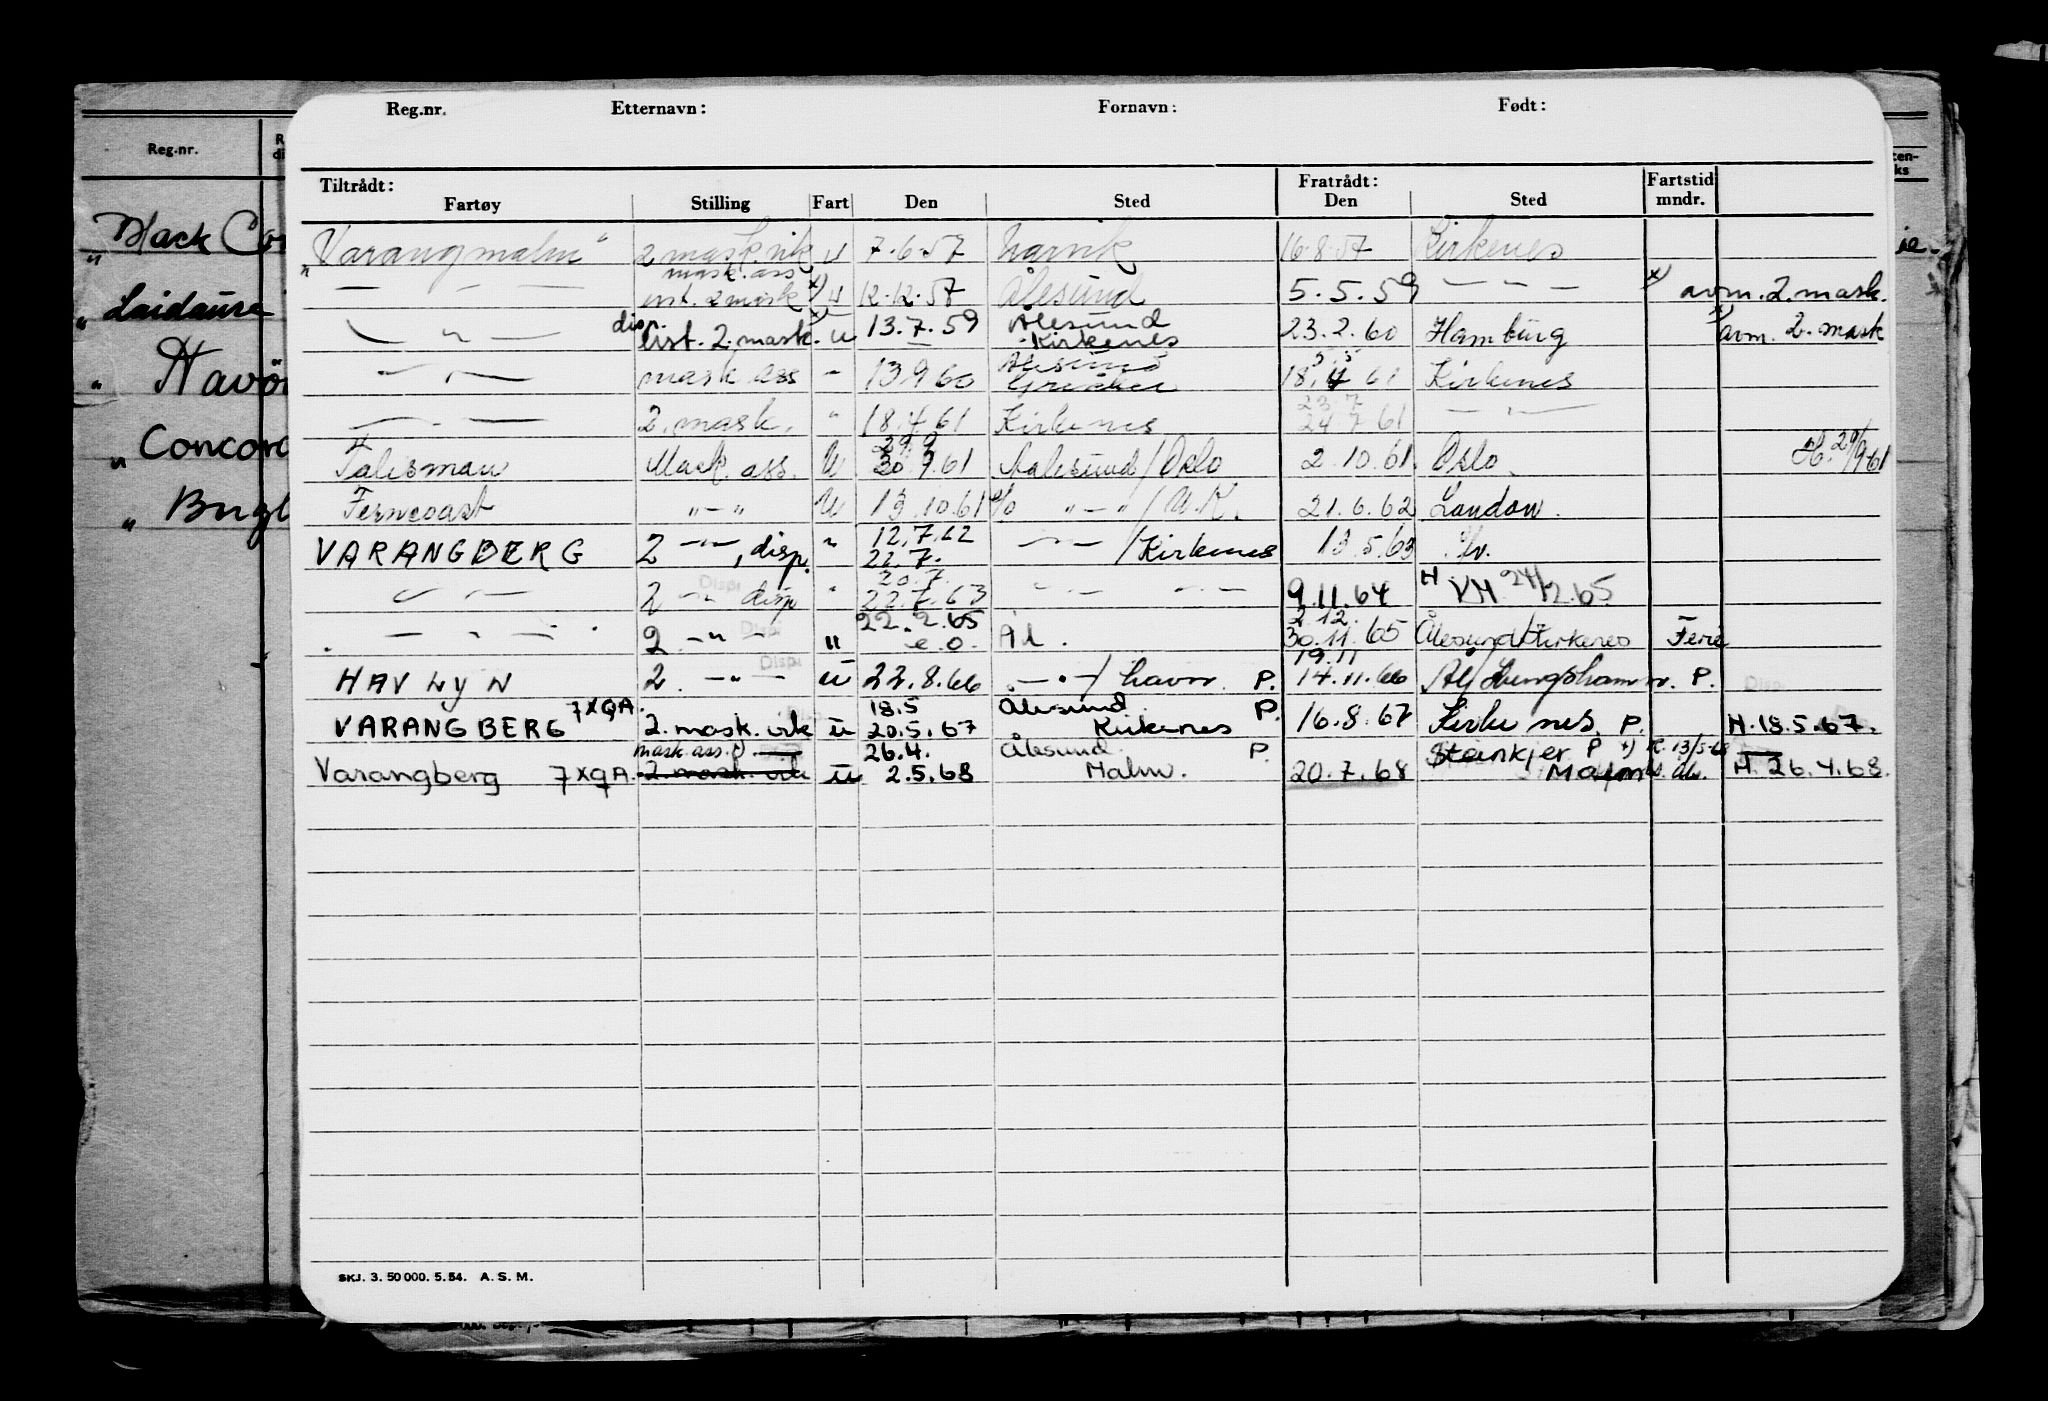 Reg.nr. Etternavn: Fornavn: Født:
Reg.nr.
Tiltrådt: Fratrådt: Fartstid
Fartøy Stilling Fart Den Sted Den Sted mndr.
"Black
"Laidaure
"
"Concord
"
"Varangmalm" 2 mask vik u 7.6.57 Narvik 16.8.57 Kirkenes
mask. ass
— " — 2 mask x) u 12.12.57 Ålesund 5.5.59 — " — x) avm. 2. mask.
disp. x) Ålesund x)
— " — 2. mask. u 13.7.59 Kirkenes 23.2.60 Hamburg avm. 2. mask
Ålesund 5.5
— " — mask ass " 13.9.60 18.4.61 Kirkenes
23.7
— " — 2. mask. " 18.4.61 Kirkenes 24.7.61 — " —
29.9
Talisman Mask. ass. U 30.9.61 Aalesund/Oslo 2.10.61 Oslo. H. 29/9-61
Ferncoast " — " U 13.10.61 " — " / U.K. 21.6.62 London.
12.7.62
VARANGBERG 2 — " —, disp. " 22.7. — " — /Kirkenes 13.5.63
20.7.
— " — 2 — " — disp " 22.7.63 " — " — " — 9.11.64 H 24/2.65
22.2.65 2.12.
— " — 2. — " — " e.o. Ål. 30.11.65 Ålesund/Kirkenes Ferie
19.11
HAVLYN 2. — " — u 22.8.66 — " — / havn. P. 14.11.66 Ål/ P.
18.5 Ålesund
VARANGBERG 7XQA. 2. mask. vik u 20.5.67 Kirkenes P. 16.8.67 Kirkenes. P. H. 18.5.67.
mask ass. 26.4. Ålesund P. Steinkjer P
Varangberg 7XQA. 2. mask. vik u 2.5.68 Malm. 20.7.68 Malm H. 26.4.68.
SKJ. 3. 50 000. 5. 54. A. S. M.